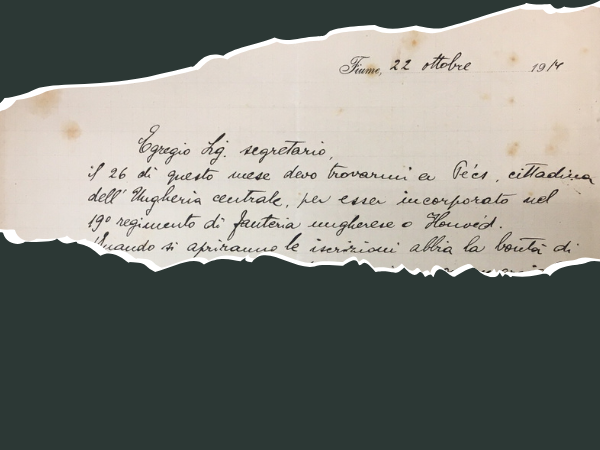 Fiume, 22 ottobre 1914
Egregio Sig. segretario,
il 26 di questo mese devo trovarmi a Pécs, cittadina
dell' Ungheria centrale, per esser incorporato nel
19º regimento di fanteria ungherese o Honvéd.
Quando si apriranno le iscrizioni abbia la bontà di